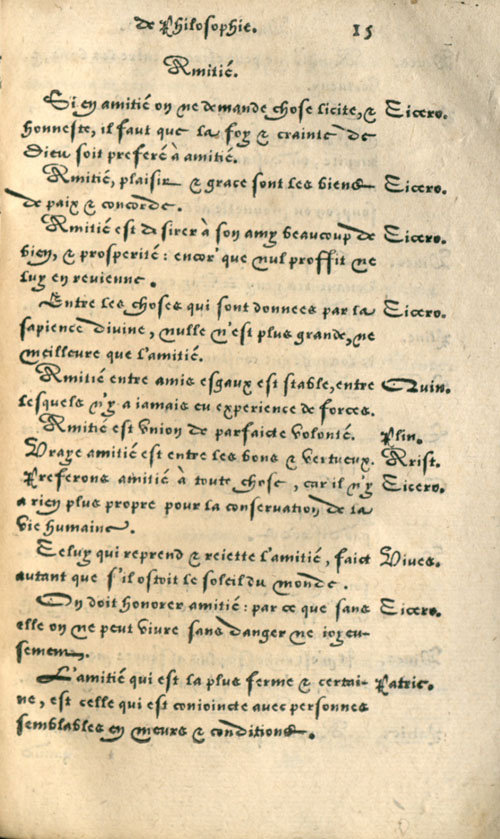 de Philosophie. 15
Amitié.
Si en amitié on ne demande chose licite, & Cicero.
honneste, il faut que la foy & crainte de
Dieu soit preferé à amitié.
Amitié, plaisir & grace sont les biens Cicero.
de paix & concorde.
Amitié est desirer à son amy beaucoup de Cicero.
bien, & prosperité: encor' que nul proffit ne
luy en revienne.
Entre les choses qui sont donnees par la Cicero.
sapience divine, nulle n'est plus grande, ne
meilleure que l'amitié.
Amitié entre amis esgaux est stable, entre Quin.
lesquels n'y a iamais eu experience de forces.
Amitié est union de parfaicte volonté. Plin.
Vraye amitié est entre les bons & vertueux. Arist.
Preferons amitié à toute chose, car il n'y Cicero.
a rien plus propre pour la conservation de la
vie humaine.
Celuy qui reprend & reiette l'amitié, faict Vives.
autant que s'il ostoit le soleil du monde.
On doit honorer amitié: par ce que sans Cicero.
elle on ne peut vivre sans danger ne ioyeu-
sement.
L'amitié qui est la plus ferme & certai- Patric.
ne, est celle qui est conioincte avec personnes
semblables en meurs & conditions.